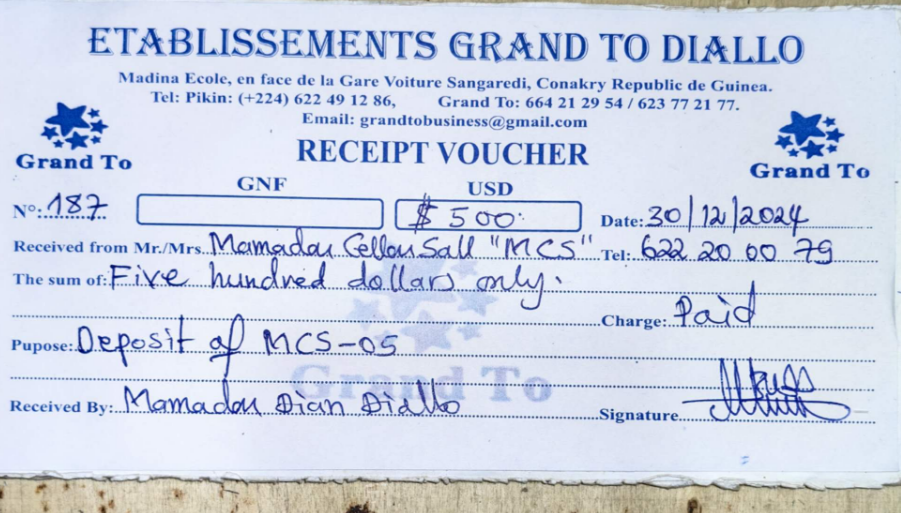 ETABLISSEMENTS GRAND TO DIALLO
Madina Ecole, en face de la Gare Voiture Sangaredi, Conakry Republic de Guinea.
Tel: Pikin: (+224) 622 49 12 86, Grand To: 664 21 29 54 / 623 77 21 77.
Email: grandtobusiness@gmail.com
Grand To
RECEIPT VOUCHER
Grand To
GNF USD
Nº: 187 $ 500 Date: 30/12/2024
Received from Mr./Mrs. Mamadou Cellou Sall "MCS" Tel: 622 20 00 79
The sum of: Five hundred dollars only.
Charge: Paid
Pupose: Deposit of MCS-05
Grand To
Received By: Mamadou Dian Diallo Signature